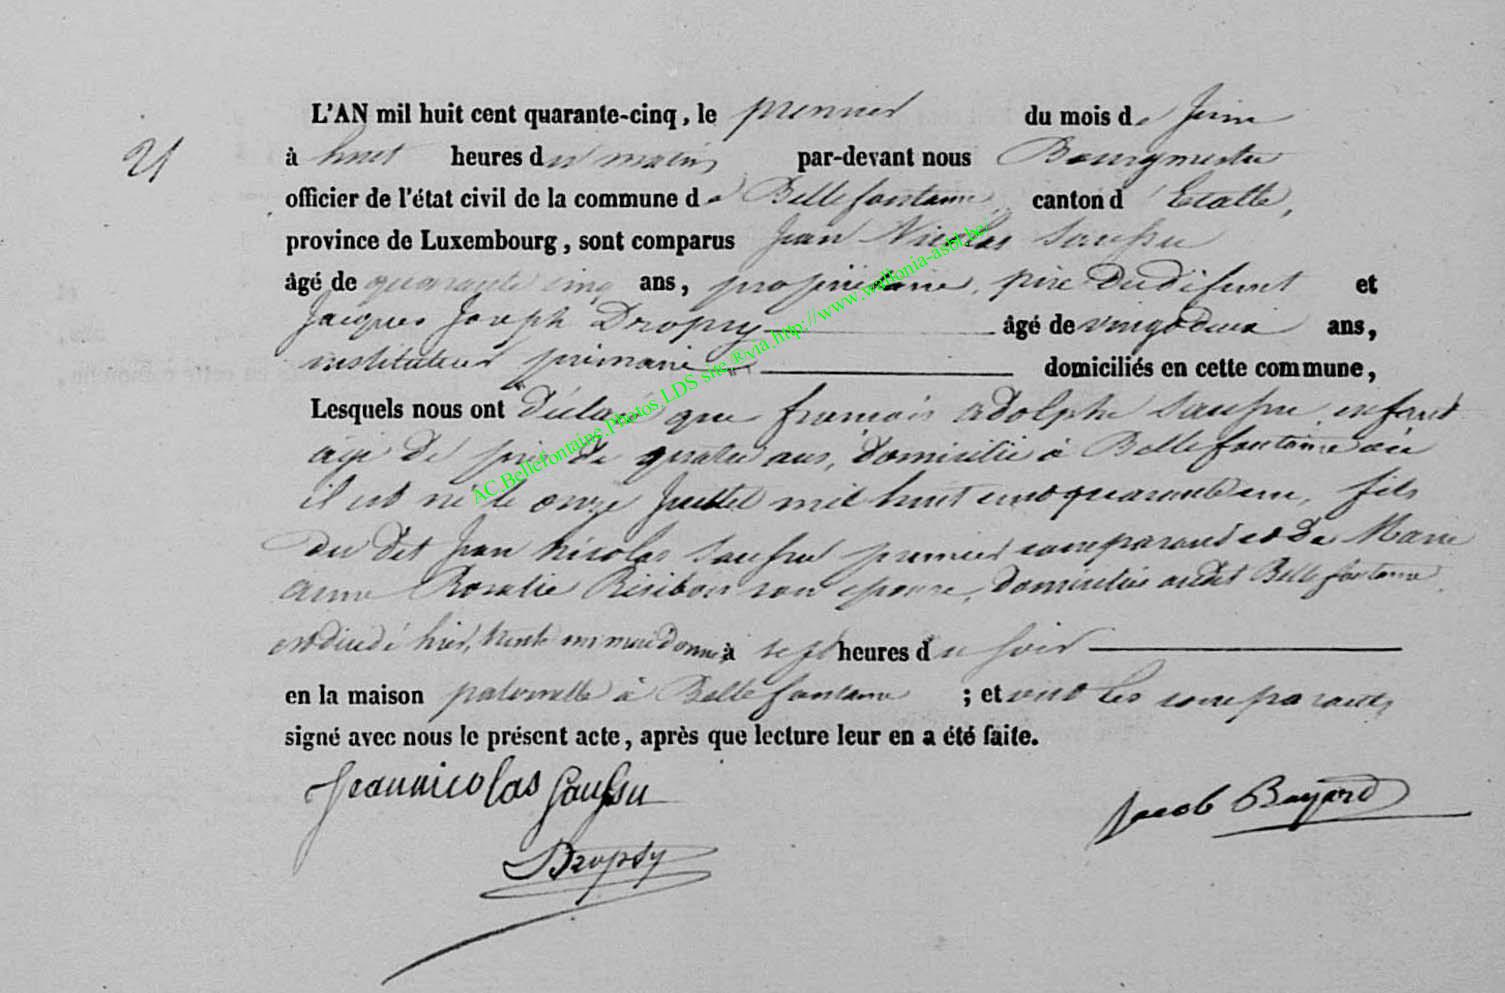 L'AN mil huit cent quarante-cinq, le premier du mois de Juin
21
à huit heures du matin par-devant nous Bourgmestre
officier de l'état civil de la commune de Bellefontaine, canton d'Etalle,
province de Luxembourg, sont comparus Jean Nicolas
âgé de quarante cinq ans, propriétaire, père du défunt et
Jacques Joseph Dropsy âgé de vingt deux ans,
instituteur primaire domiciliés en cette commune,
Lesquels nous ont déclaré que françois adolphe enfant
agé de près de quatre ans, domicilié à Bellefontaine où
il est né le onze Juillet mil huit cent quarante un, fils
du dit Jean Nicolas premier comparant et de Marie
anne Rosalie son epouse, domiciliée audit Bellefontaine,
est décédé hier, trente un mai à sept heures du soir
en la maison paternelle à Bellefontaine ; et ont les comparants
signé avec nous le présent acte, après que lecture leur en a été faite.
Jeannicolas
Jacob Bayard
Dropsy
AC.Bellefontaine.Photos.LDS site ®via.http://www.wallonia-asbl.be/